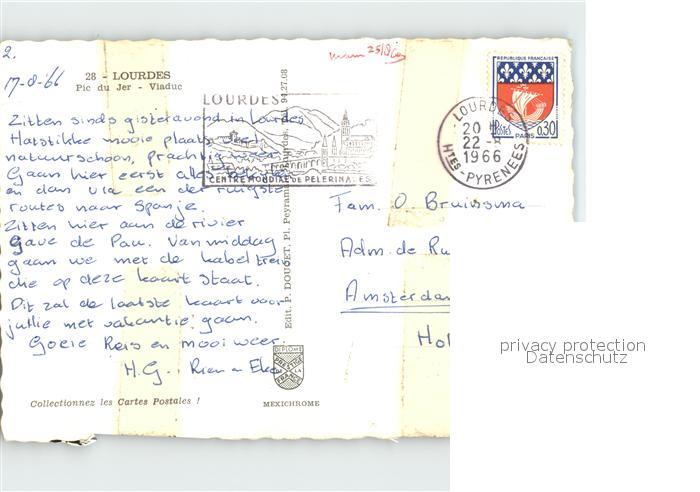 2.
17-8-'66
28 - LOURDES
Pic du Jer - Viaduc
Zitten sinds gisteravond in Lourdes
Hatstikke mooie plaats, veel
natuurschoon, prachtig weer.
Gaan hier eerst alles
en dan via een der ruigste
routes naar Spanje.
Zitten hier aan de rivier
Gave de Pau. Vanmiddag
gaan we met de kabeltrein
die op deze kaart staat.
Dit zal de laatste kaart voor
jullie met vakantie gaan.
Goeie Reis en mooi weer.
H.G.. Rien en
Collectionnez les Cartes Postales !
MEXICHROME
Edit. P. DOUCET, Pl. Peyramale, Lourdes. 94.27.08
DIPLOME
PRESTIGE
DE LA
FRANCE
LOURDES
CENTRE MONDIAL DE PÈLERINAGES
25/8
REPUBLIQUE FRANÇAISE
POSTES
0,30
PARIS
LOURDES
20 H
22 - 8
1966
HTES-PYRENEES
Fam. O. Bruinsma
Adm. de Ru
Amsterdam
Hol
privacy protection
Datenschutz